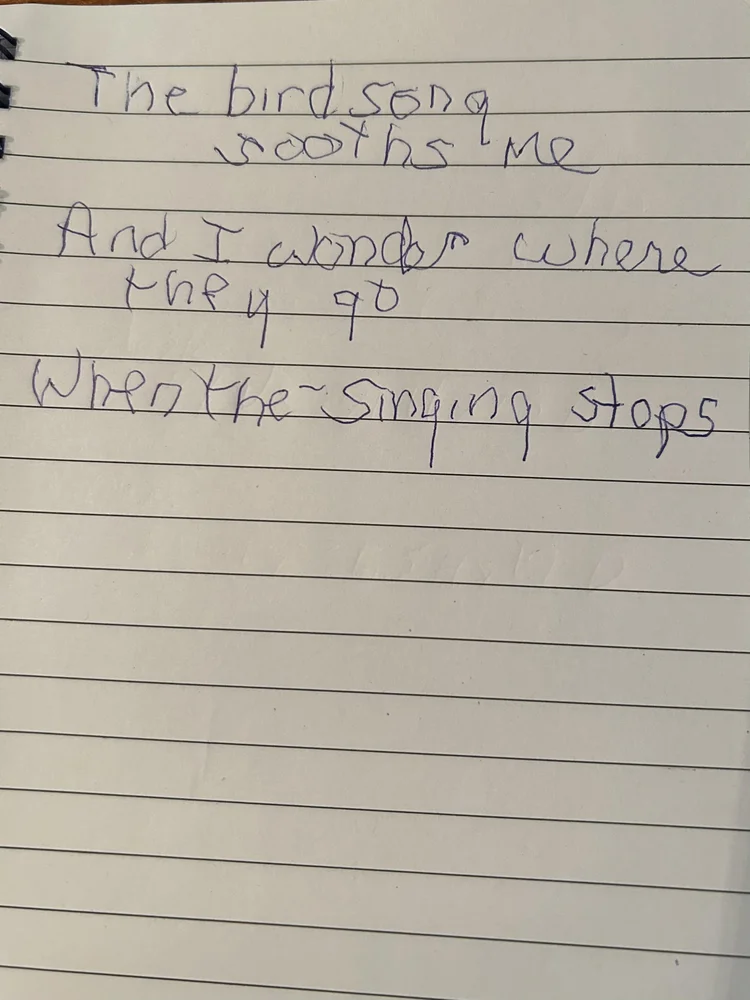 The bird song
sooths me
And I wonder where
they go
When the singing stops